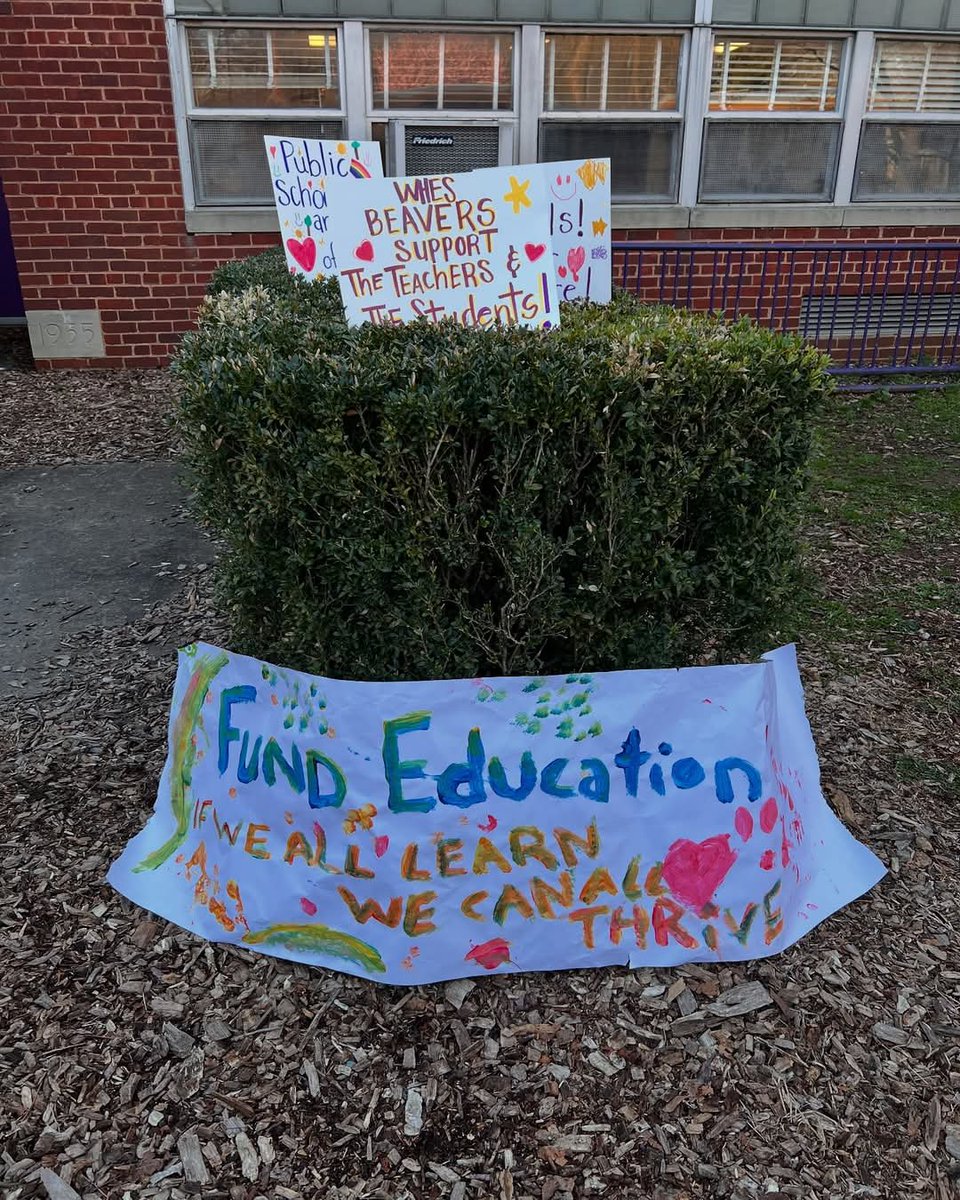 Friedrich
Public
School
ar
of
WHES
BEAVERS
SUPPORT
THE TEACHERS &
THE Students!
ls!
ce!
1955
FUND Education
IF WE ALL LEARN
WE CAN ALL
THRIVE